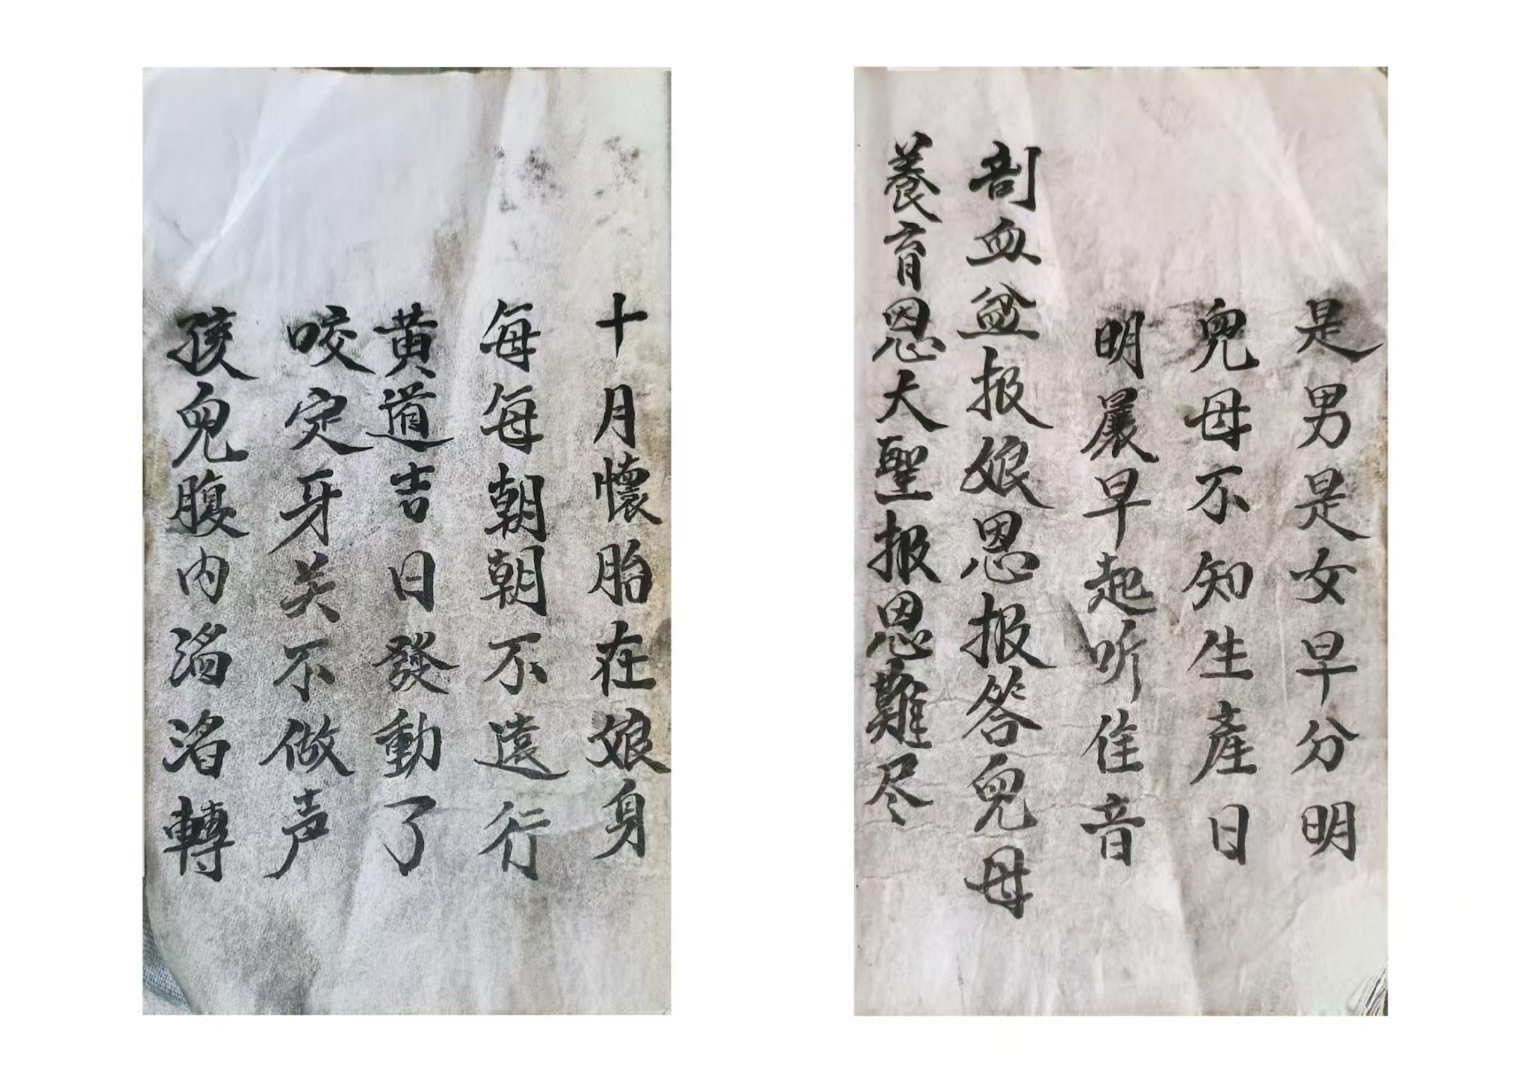 十月懷胎在娘身
每每朝朝不遠行
黄道吉日發動了
咬定牙关不做声
孩兒腹内滔滔轉
是男是女早分明
兒母不知生產日
明晨早起听佳音
剖血盆报娘恩报答兒母
養育恩大聖报恩難尽